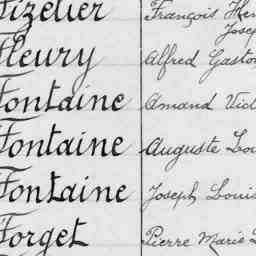 Fizelier François Hen
Josep
Fleury Alfred Gaston
Fontaine Amand Vict
Fontaine Auguste Lou
Fontaine Joseph Louis
Forget Pierre Marie L